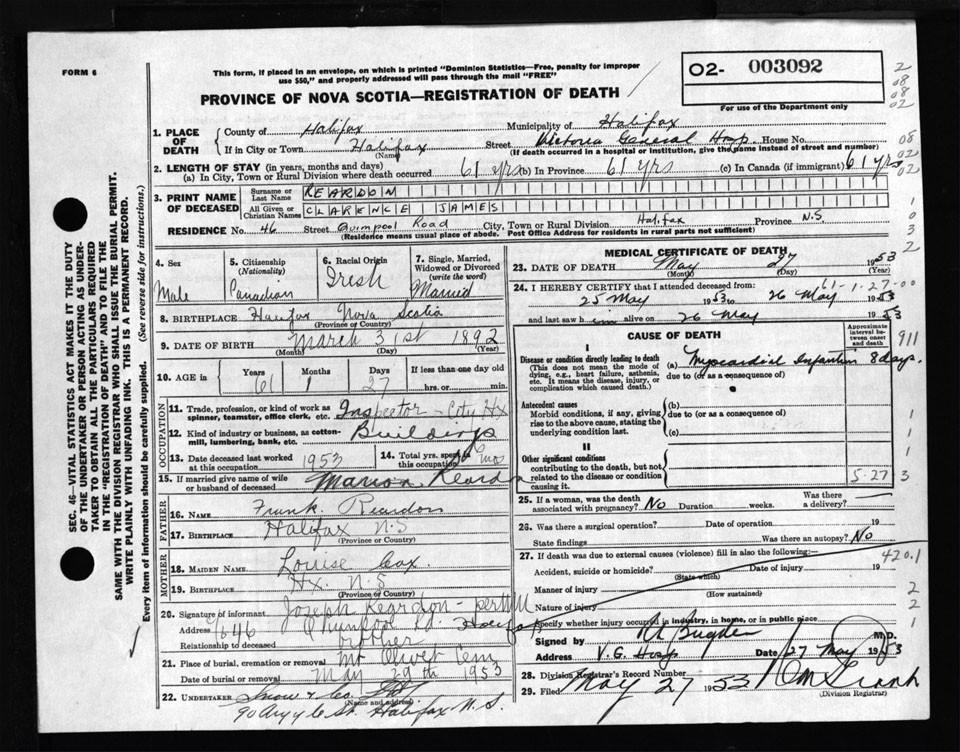 FORM 6
This form, if placed in an envelope, on which is printed "Dominion Statistics—Free, penalty for improper
use $50," and properly addressed will pass through the mail "FREE"
PROVINCE OF NOVA SCOTIA—REGISTRATION OF DEATH
O2- 003092
For use of the Department only
2
08
08
02
1. PLACE OF DEATH
County of Halifax Municipality of Halifax
If in City or Town Halifax (Name) Street Victoria General Hosp. House No.
(If death occurred in a hospital or institution, give the name instead of street and number)
08
02
02
2. LENGTH OF STAY (in years, months and days)
(a) In City, Town or Rural Division where death occurred 61 yrs (b) In Province 61 yrs (c) In Canada (if immigrant) 61 yrs
3. PRINT NAME OF DECEASED
Surname or Last Name REARDON
All Given or Christian Names CLARENCE JAMES
RESIDENCE No. 46 Street Quinpool Road City, Town or Rural Division Halifax Province N.S.
(Residence means usual place of abode. Post Office Address for residents in rural parts not sufficient)
1
0
3
2
SEC. 46—VITAL STATISTICS ACT MAKES IT THE DUTY
OF THE UNDERTAKER OR PERSON ACTING AS UNDER-
TAKER TO OBTAIN ALL THE PARTICULARS REQUIRED
IN THE "REGISTRATION OF DEATH" AND TO FILE THE
SAME WITH THE DIVISION REGISTRAR WHO SHALL ISSUE THE BURIAL PERMIT.
WRITE PLAINLY WITH UNFADING INK. THIS IS A PERMANENT RECORD.
Every item of information should be carefully supplied. (See reverse side for instructions.)
4. Sex Male
5. Citizenship (Nationality) Canadian
6. Racial Origin Irish
7. Single, Married, Widowed or Divorced (write the word) Married
8. BIRTHPLACE Halifax Nova Scotia
(Province or Country)
9. DATE OF BIRTH March 31st 1892
(Month) (Day) (Year)
10. AGE in Years 61 Months 1 Days 27 If less than one day old
hrs. or min.
OCCUPATION
11. Trade, profession, or kind of work as spinner, teamster, office clerk, etc. Inspector - City Hx
12. Kind of industry or business, as cotton-mill, lumbering, bank, etc. Buildings
13. Date deceased last worked at this occupation 1953
14. Total yrs. spent in this occupation mos
15. If married give name of wife or husband of deceased Marion Reardon
FATHER
16. NAME Frank Reardon
17. BIRTHPLACE Halifax N.S
(Province or Country)
MOTHER
18. MAIDEN NAME Louise Cox
19. BIRTHPLACE Hx. N.S
(Province or Country)
20. Signature of informant Joseph Reardon - per
Address 646 Quinpool Rd. Halifax
Relationship to deceased brother
21. Place of burial, cremation or removal Mt Olivet Cem
Date of burial or removal May 29th 1953
22. UNDERTAKER Snow & Co.
(Name and address)
90 Argyle St. Halifax N.S.
MEDICAL CERTIFICATE OF DEATH
23. DATE OF DEATH May 27 1953
(Month) (Day) (Year)
61-1-27-00
24. I HEREBY CERTIFY that I attended deceased from:
25 May 1953 to 26 May 1953
and last saw him alive on 26 May 1953
CAUSE OF DEATH
Approximate interval between onset and death
911
I
Disease or condition directly leading to death
(This does not mean the mode of dying, e.g., heart failure, asthenia, etc. It means the disease, injury, or complication which caused death.)
(a) Myocardial Infarction 8 days.
due to (or as a consequence of)
Antecedent causes
Morbid conditions, if any, giving rise to the above cause, stating the underlying condition last.
(b)
due to (or as a consequence of)
(c)
1
1
1
II
Other significant conditions contributing to the death, but not related to the disease or condition causing it.
5-27 3
25. If a woman, was the death associated with pregnancy? No Duration weeks. Was there a delivery?
26. Was there a surgical operation? Date of operation 19
State findings Was there an autopsy? No
27. If death was due to external causes (violence) fill in also the following:
420.1
Accident, suicide or homicide? (State which) Date of injury 19
Manner of injury (How sustained)
Nature of injury
2
2
Specify whether injury occurred in industry, in home, or in public place
1
Signed by Bugden M.D.
Address V.G. Hosp Date 27 May 1953
28. Division Registrar's Record Number
29. Filed May 27 1953
(Division Registrar)